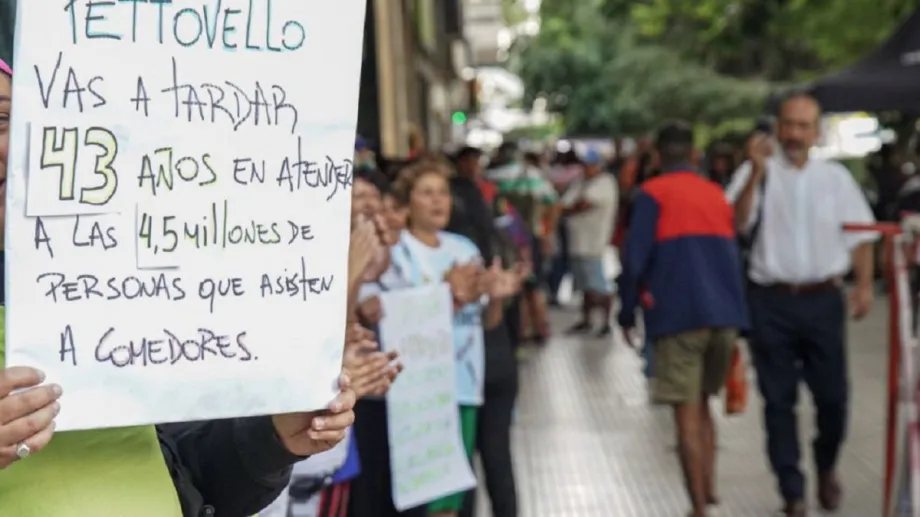 PETTOVELLO
VAS A TARDAR
43 AÑOS EN ATENDER
A LAS 4,5 millones DE
PERSONAS QUE ASISTEN
A COMEDORES.